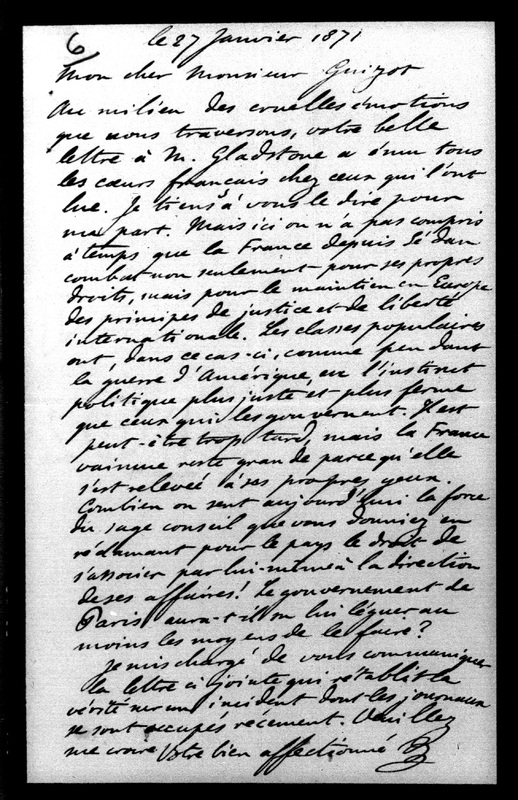 6
le 27 Janvier 1871
Mon cher Monsieur Guizot
Au milieu des cruelles émotions
que nous traversons, votre belle
lettre à M. Gladstone a ému tous
les cœurs français chez ceux qui l'ont
lue. Je tiens à vous le dire pour
ma part. Mais ici on n'a pas compris
à temps que la France depuis Sédan
combat non seulement pour ses propres
droits, mais pour le maintien en Europe
des principes de justice et de liberté
internationale. Les classes populaires
ont, dans ce cas-ci, comme pendant
la guerre d'Amérique, eu l'instinct
politique plus juste et plus ferme
que ceux qui les gouvernent. Il est
peut-être trop tard, mais la France
vaincue reste grande parce qu'elle
s'est relevée à ses propres yeux.
Combien on sent aujourd'hui la force
du sage conseil que vous donniez en
réclamant pour le pays le droit de
s'associer par lui-même à la direction
de ses affaires! Le gouvernement de
Paris aura-t-il su lui léguer au
moins les moyens de le faire?
Je suis chargé de vous communiquer
la lettre ci jointe qui rétablit la
vérité sur un incident dont les journaux
se sont occupés récement. Veuillez
me croire Votre bien affectionné